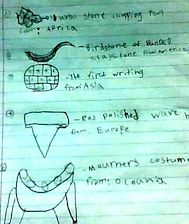 stone chopping tool
from: Africa
-Birdstone of BANDED
claystone from America
-The first writing
from Asia
-Red polished ware
from Europe
-Mourners costume
from: oceania